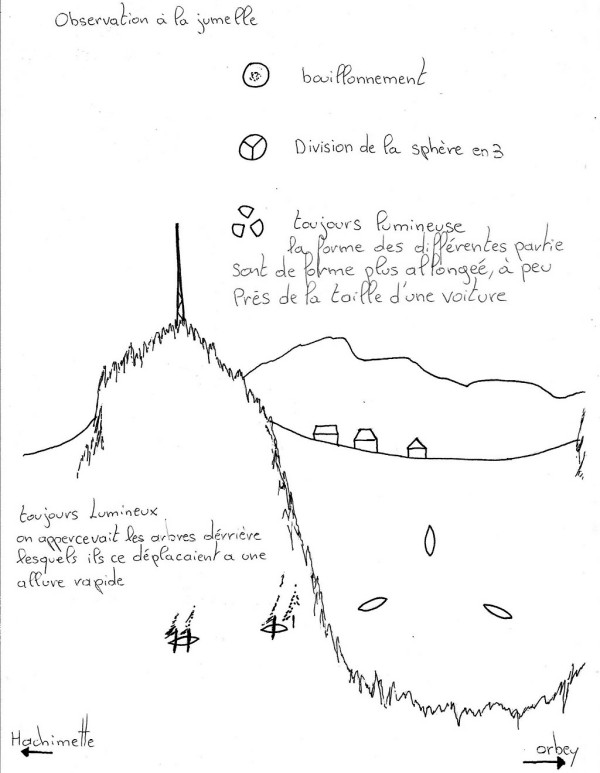 Observation à la jumelle
bouillonnement
Division de la sphère en 3
toujours lumineuse
la forme des différentes partie
sont de forme plus allongeé, à peu
Près de la taille d'une voiture
toujours Lumineux
on appercevait les arbres dérrière
lesquels ils ce déplacaient a une
allure rapide
Hachimette
orbey